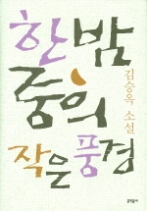 한밤
중의
작은 풍경
김승옥 소설
문학동네